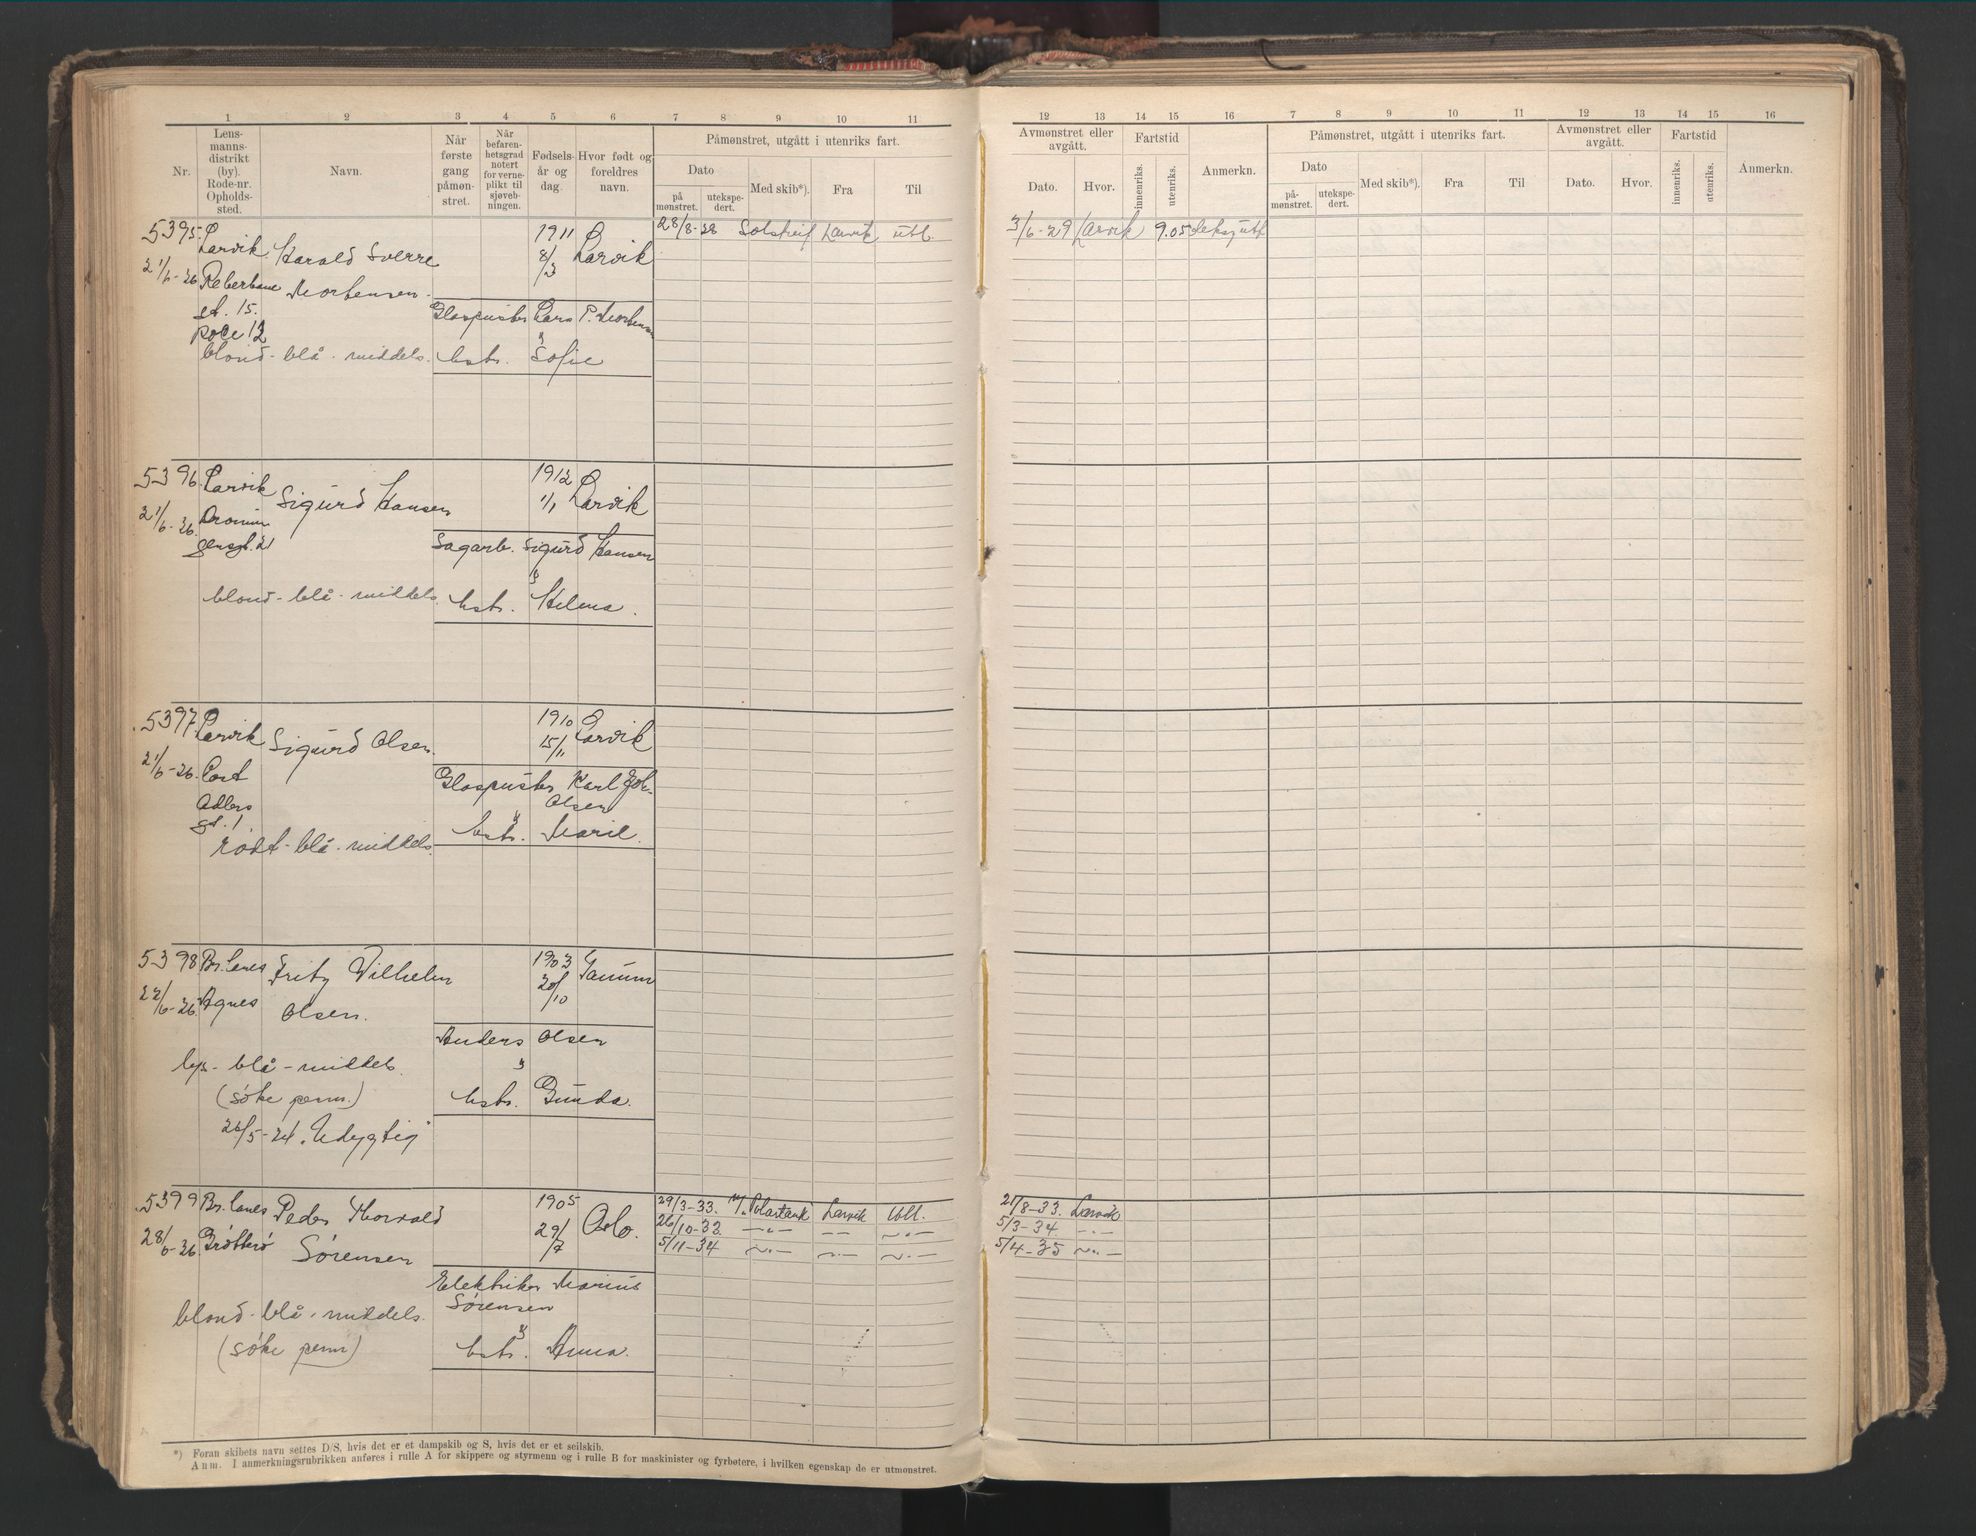 1 2 3 4 5 6 7 8 9 10 11
Nr.
Lens-
manns-
distrikt
(by).
Rode-nr.
Opholds-
sted.
Navn.
Når
første
gang
påmøn-
stret.
Når
befaren-
hetsgrad
notert
for verne-
plikt til
sjøveb-
ningen.
Fødsels-
år og
dag.
Hvor født og
foreldres
navn.
Påmønstret, utgått i utenriks fart.
Dato
på
mønstret.
utekspe-
dert.
Med skib*).
Fra
Til
12 13 14 15 16 7 8 9 10 11 12 13 14 15 16
Avmønstret eller
avgått.
Dato. Hvor.
Fartstid
innenriks.
utenriks.
Anmerkn.
Påmønstret, utgått i utenriks fart.
Dato
på-
mønstret.
utekspe-
dert.
Med skib*).
Fra
Til
Avmønstret eller
avgått.
Dato. Hvor.
Fartstid
innenriks.
utenriks.
Anmerkn.
5395 Larvik Harald Sverre 1911 Larvik 28/8-28 Solstreif Larvik utl. 3/6-29 Larvik 9.05
21/6-26 Reberbane Mortensen. 8/3
gt. 15. Glaspuster Lars P. Mortensen
rode 12
blond - blå - middels. hstr. Sofie
5396 Larvik Sigurd Hansen 1912 Larvik
21/6-26 1/1
gensgt. 21 Sagarb. Sigurd Hansen
blond - blå - middels. hstr. Helma.
5397 Larvik Sigurd Olsen. 1910 Larvik
21/6-26. Cort 15/11
Adlers Glaspuster Karl Joh.
gt. 1 Olsen
rødt - blå - middels. hstr. Marie.
5398 Br.lanes Fritz Wilhelm 1903 Tanum
22/6-26 Agnes Olsen. 20/10
Anders Olsen
lys - blå - middels.
(søke perm.) hstr. Gunda.
Udygtig
5399 Br.lanes Peder Thorvald 1905 Oslo. 29/3-33. M/ Polartank Larvik Utl. 21/8-33. Larvik
28/6-26 Grøtterø Sørensen 29/7 26/10-33. -"- - -"- 5/3-34. -"-
5/11-34 -"- -"- -"- 5/4-35 -"-
Elektriker Marius
Sørensen
blond - blå - middels.
(søke perm) hstr. Anna.
*) Foran skibets navn settes D/S, hvis det er et dampskib og S, hvis det er et seilskib.
Anm. I anmerkningsrubrikken anføres i rulle A for skippere og styrmenn og i rulle B for maskinister og fyrbøtere, i hvilken egenskap de er utmønstret.